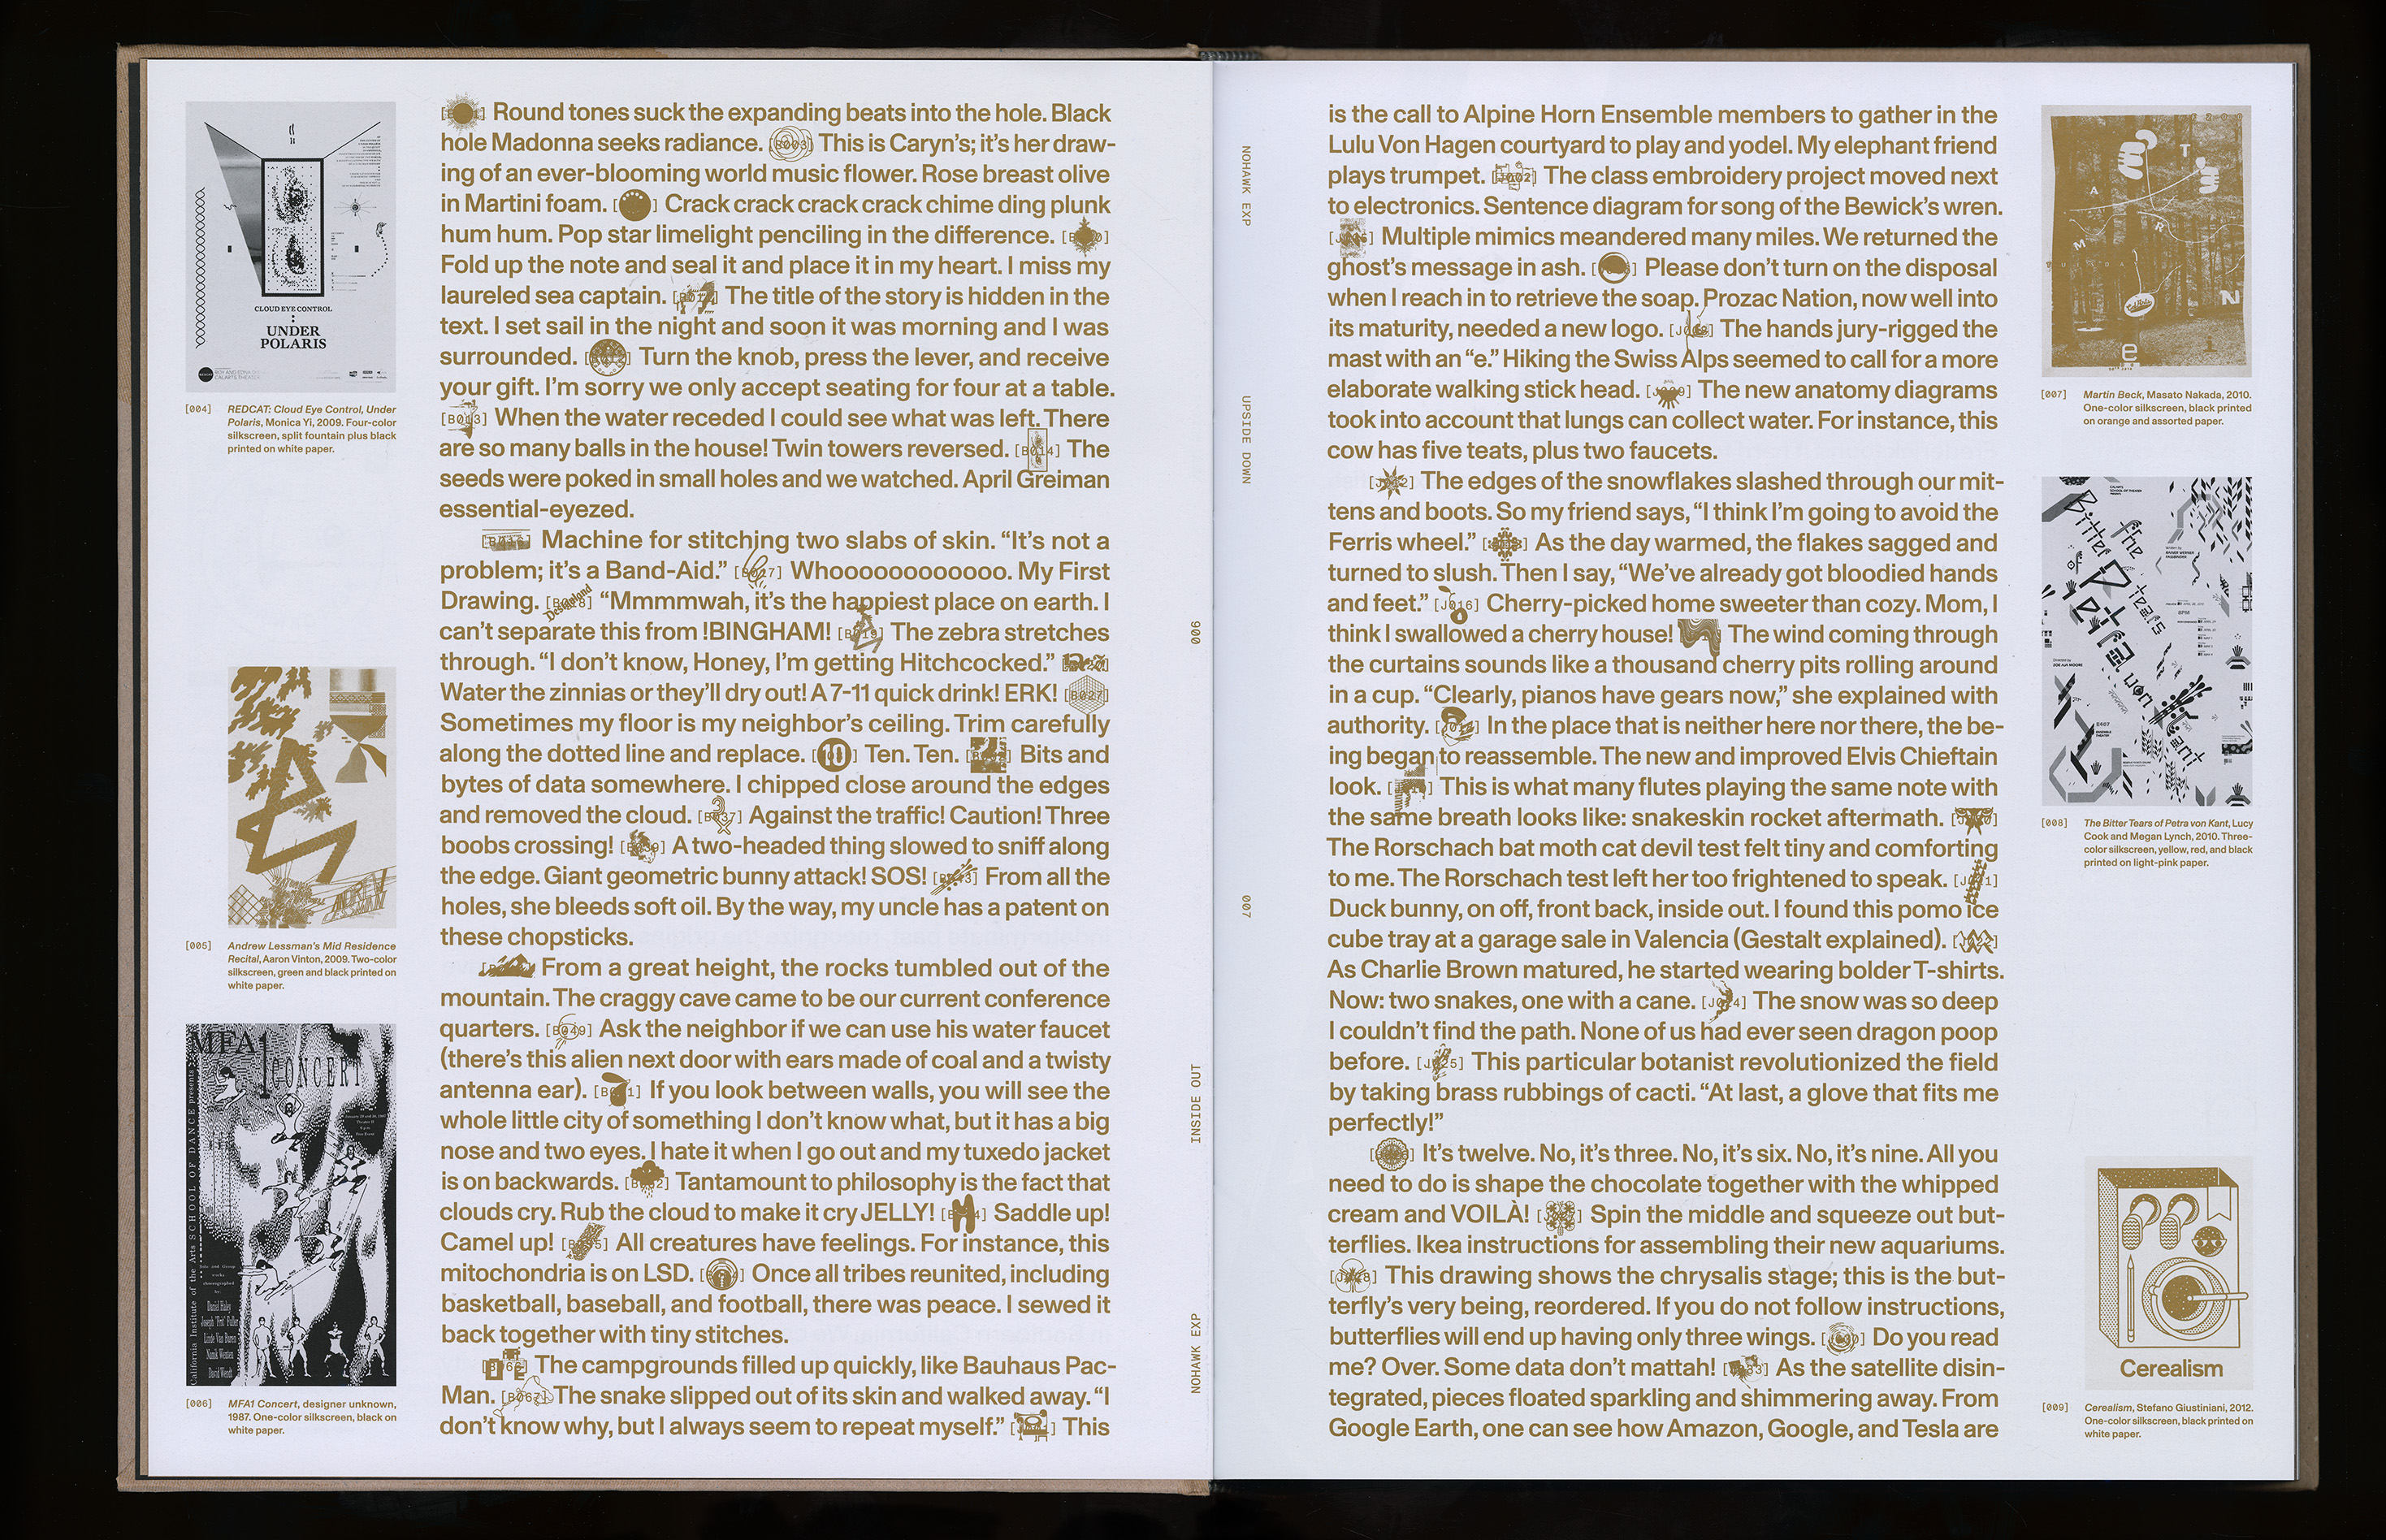 CLOUD EYE CONTROL
UNDER
POLARIS
[004] REDCAT: Cloud Eye Control, Under
Polaris, Monica Yi, 2009. Four-color
silkscreen, split fountain plus black
printed on white paper.
[005] Andrew Lessman’s Mid Residence
Recital, Aaron Vinton, 2009. Two-color
silkscreen, green and black printed on
white paper.
MFA1
CONCERT
California Institute of the Arts SCHOOL OF DANCE presents
[006] MFA1 Concert, designer unknown,
1987. One-color silkscreen, black on
white paper.
Round tones suck the expanding beats into the hole. Black
hole Madonna seeks radiance. [B003] This is Caryn’s; it’s her draw-
ing of an ever-blooming world music flower. Rose breast olive
in Martini foam. [ ] Crack crack crack crack chime ding plunk
hum hum. Pop star limelight penciling in the difference.
Fold up the note and seal it and place it in my heart. I miss my
laureled sea captain. The title of the story is hidden in the
text. I set sail in the night and soon it was morning and I was
surrounded. Turn the knob, press the lever, and receive
your gift. I’m sorry we only accept seating for four at a table.
[B013] When the water receded I could see what was left. There
are so many balls in the house! Twin towers reversed. [B014] The
seeds were poked in small holes and we watched. April Greiman
essential-eyezed.
Machine for stitching two slabs of skin. “It’s not a
problem; it’s a Band-Aid.” [B017] Whoooooooooooo. My First
Drawing. [B018] “Mmmmwah, it’s the happiest place on earth. I
can’t separate this from !BINGHAM! [B019] The zebra stretches
through. “I don’t know, Honey, I’m getting Hitchcocked.”
Water the zinnias or they’ll dry out! A 7-11 quick drink! ERK! [B027]
Sometimes my floor is my neighbor’s ceiling. Trim carefully
along the dotted line and replace. [10] Ten. Ten. Bits and
bytes of data somewhere. I chipped close around the edges
and removed the cloud. [B037] Against the traffic! Caution! Three
boobs crossing! A two-headed thing slowed to sniff along
the edge. Giant geometric bunny attack! SOS! From all the
holes, she bleeds soft oil. By the way, my uncle has a patent on
these chopsticks.
From a great height, the rocks tumbled out of the
mountain. The craggy cave came to be our current conference
quarters. [B049] Ask the neighbor if we can use his water faucet
(there’s this alien next door with ears made of coal and a twisty
antenna ear). If you look between walls, you will see the
whole little city of something I don’t know what, but it has a big
nose and two eyes. I hate it when I go out and my tuxedo jacket
is on backwards. Tantamount to philosophy is the fact that
clouds cry. Rub the cloud to make it cry JELLY! Saddle up!
Camel up! All creatures have feelings. For instance, this
mitochondria is on LSD. Once all tribes reunited, including
basketball, baseball, and football, there was peace. I sewed it
back together with tiny stitches.
The campgrounds filled up quickly, like Bauhaus Pac-
Man. [B067] The snake slipped out of its skin and walked away. “I
don’t know why, but I always seem to repeat myself.” This
006
INSIDE OUT
NOHAWK EXP
NOHAWK EXP
UPSIDE DOWN
007
is the call to Alpine Horn Ensemble members to gather in the
Lulu Von Hagen courtyard to play and yodel. My elephant friend
plays trumpet. [J002] The class embroidery project moved next
to electronics. Sentence diagram for song of the Bewick’s wren.
Multiple mimics meandered many miles. We returned the
ghost’s message in ash. Please don’t turn on the disposal
when I reach in to retrieve the soap. Prozac Nation, now well into
its maturity, needed a new logo. The hands jury-rigged the
mast with an “e.” Hiking the Swiss Alps seemed to call for a more
elaborate walking stick head. The new anatomy diagrams
took into account that lungs can collect water. For instance, this
cow has five teats, plus two faucets.
The edges of the snowflakes slashed through our mit-
tens and boots. So my friend says, “I think I’m going to avoid the
Ferris wheel.” As the day warmed, the flakes sagged and
turned to slush. Then I say, “We’ve already got bloodied hands
and feet.” [J016] Cherry-picked home sweeter than cozy. Mom, I
think I swallowed a cherry house! The wind coming through
the curtains sounds like a thousand cherry pits rolling around
in a cup. “Clearly, pianos have gears now,” she explained with
authority. In the place that is neither here nor there, the be-
ing began to reassemble. The new and improved Elvis Chieftain
look. This is what many flutes playing the same note with
the same breath looks like: snakeskin rocket aftermath.
The Rorschach bat moth cat devil test felt tiny and comforting
to me. The Rorschach test left her too frightened to speak.
Duck bunny, on off, front back, inside out. I found this pomo ice
cube tray at a garage sale in Valencia (Gestalt explained).
As Charlie Brown matured, he started wearing bolder T-shirts.
Now: two snakes, one with a cane. [J024] The snow was so deep
I couldn’t find the path. None of us had ever seen dragon poop
before. [J025] This particular botanist revolutionized the field
by taking brass rubbings of cacti. “At last, a glove that fits me
perfectly!”
It’s twelve. No, it’s three. No, it’s six. No, it’s nine. All you
need to do is shape the chocolate together with the whipped
cream and VOILÀ! Spin the middle and squeeze out but-
terflies. Ikea instructions for assembling their new aquariums.
[J028] This drawing shows the chrysalis stage; this is the but-
terfly’s very being, reordered. If you do not follow instructions,
butterflies will end up having only three wings. Do you read
me? Over. Some data don’t mattah! As the satellite disin-
tegrated, pieces floated sparkling and shimmering away. From
Google Earth, one can see how Amazon, Google, and Tesla are
[007] Martin Beck, Masato Nakada, 2010.
One-color silkscreen, black printed
on orange and assorted paper.
[008] The Bitter Tears of Petra von Kant, Lucy
Cook and Megan Lynch, 2010. Three-
color silkscreen, yellow, red, and black
printed on light-pink paper.
Cerealism
[009] Cerealism, Stefano Giustiniani, 2012.
One-color silkscreen, black printed on
white paper.